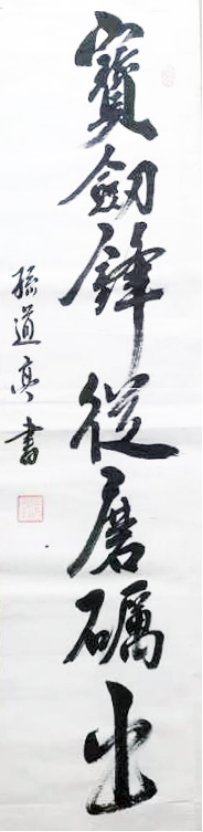 寶劔鋒從磨礪出
孫道亮書